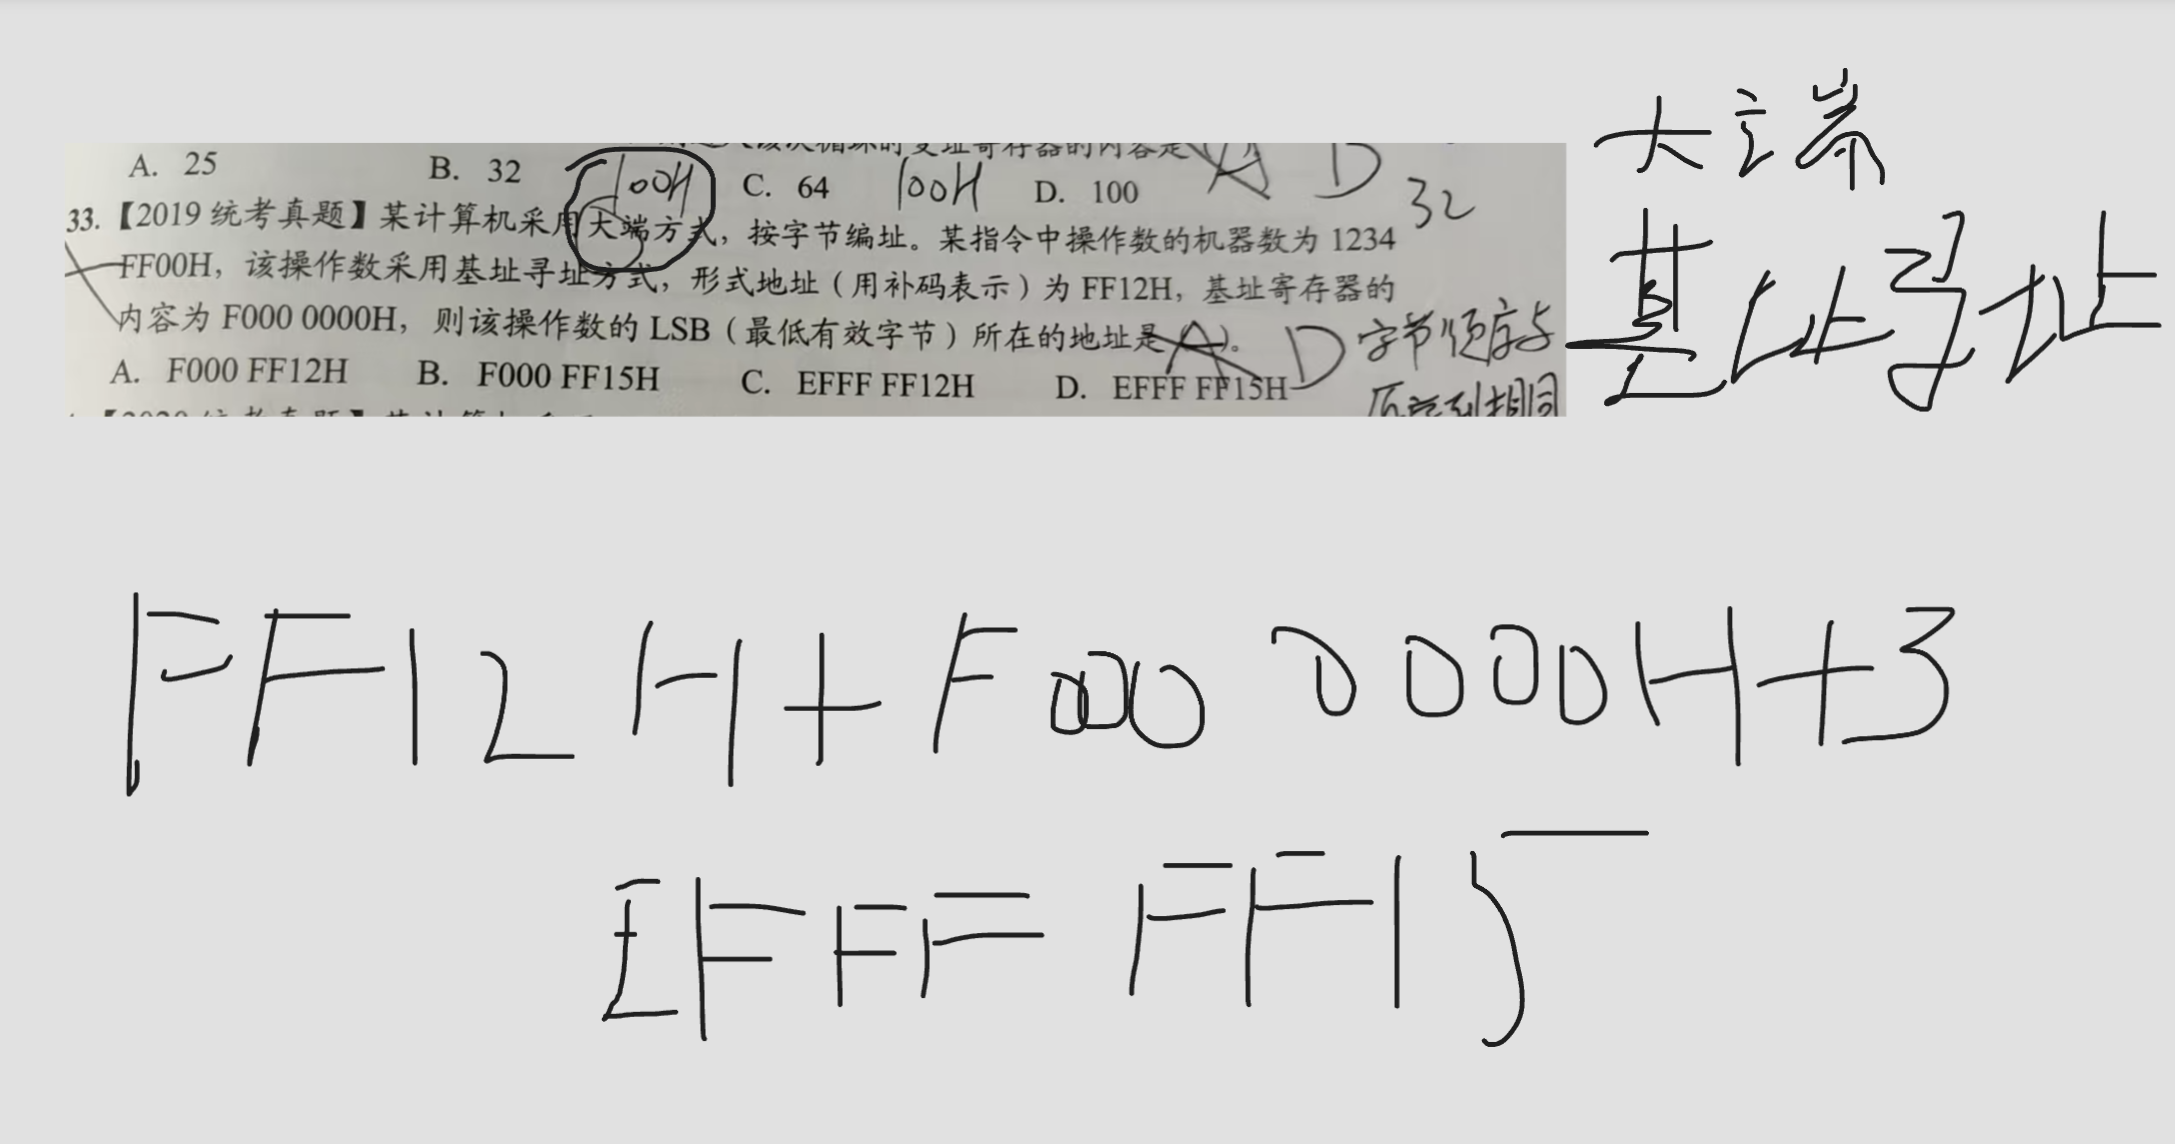 A. 25 B. 32 100H C. 64 100H D. 100 D 32
33.【2019 统考真题】某计算机采用大端方式，按字节编址。某指令中操作数的机器数为 1234
FF00H，该操作数采用基址寻址方式，形式地址（用补码表示）为 FF12H，基址寄存器的
内容为 F000 0000H，则该操作数的 LSB（最低有效字节）所在的地址是（A）。 D 字节顺序与
A. F000 FF12H B. F000 FF15H C. EFFF FF12H D. EFFF FF15H
大端
基址寻址
FF12H+F000 0000H+3
EFFF FF15